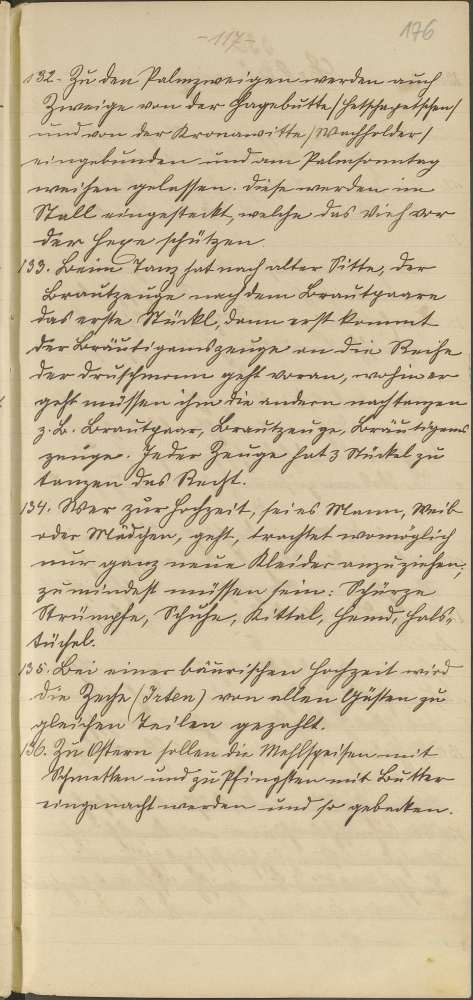 -117-
176
132. Zu den Palmzweigen werden auch
Zweige von der Hagebutte /Hetschepetschen/
und von der Kronawitte /Wachholder/
eingebunden und am Palmsonntag
weihen gelassen. Diese werden im
Stall eingesteckt, welche das Vieh vor
der Hexe schützen
133. Beim Tanz hat nach alter Sitte, der
Brautzeuge nach dem Brautpaare
das erste Stückl, dann erst kommt
der Bräutigamszeuge an die Reihe
der Druschmann geht voran, wohin er
geht müssen ihm die andern nachtanzen
z.B. Brautpaar, Brautzeuge, Bräutigams
zeuge. Jeder Zeuge hat 3 Stückel zu
tanzen das Recht.
134. Wer zur Hochzeit, sei es Mann, Weib
oder Mädchen, geht, trachtet womöglich
nur ganz neue Kleider anzuziehen,
zumindest müssen sein: Schürze
Strümpfe, Schuhe, Kittal, Hemd, Hals-
tüchel.
135. Bei einer bäurischen Hochzeit wird
die Zeche (Irten) von allen Gästen zu
gleichen Teilen gezahlt.
136. Zu Ostern sollen die Mehlspeisen mit
Schmetten und zu Pfingsten mit Butter
eingemacht werden und so gebacken.